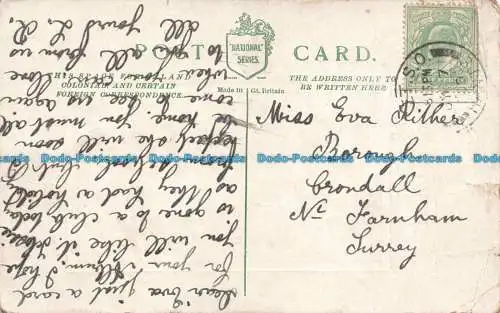 POST CARD.
"NATIONAL"
SERIES.
THIS SPACE FOR INLAND,
COLONIAL AND CERTAIN
FOREIGN CORRESPONDENCE.
Made in Gt. Britain
THE ADDRESS ONLY TO
BE WRITTEN HERE
Miss Eva
Borough
Crondall
Nr Farnham
Surrey
Dear Eva just a card
for your Album. I hope
you will like it
is gone to a club today
as they had a holiday
from school
she will soon
be home. You must all
come & see us again
when you love
to all from us
all yours
Dodo-Postcards Dodo-Postcards Dodo-Postcards Dodo-Postcards Dodo-Postcards
Dodo-Postcards Dodo-Postcards Dodo-Postcards Dodo-Postcards Dodo-Postcards